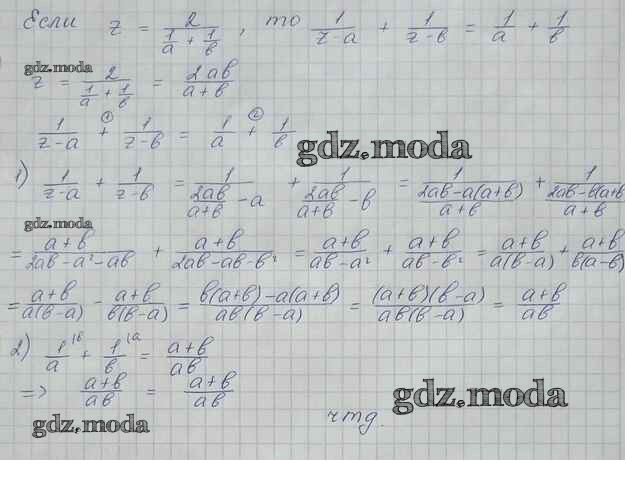 Если z = 2/(1/a + 1/b), то 1/(z-a) + 1/(z-b) = 1/a + 1/b
gdz.moda
z = 2/(1/a + 1/b) = 2ab/(a+b)
1/(z-a) +① 1/(z-b) = 1/a +② 1/b
gdz.moda
1) 1/(z-a) + 1/(z-b) = 1/(2ab/(a+b) - a) + 1/(2ab/(a+b) - b) = 1/((2ab-a(a+b))/(a+b)) + 1/((2ab-b(a+b))/(a+b))
gdz.moda
= (a+b)/(2ab-a²-ab) + (a+b)/(2ab-ab-b²) = (a+b)/(ab-a²) + (a+b)/(ab-b²) = (a+b)/(a(b-a)) + (a+b)/(b(a-b))
= (a+b)/(a(b-a)) - (a+b)/(b(b-a)) = (b(a+b)-a(a+b))/(ab(b-a)) = ((a+b)(b-a))/(ab(b-a)) = (a+b)/(ab)
2) 1/a |b + 1/b |a = (a+b)/(ab)
=> (a+b)/(ab) = (a+b)/(ab)
gdz.moda
чтд.
gdz.moda